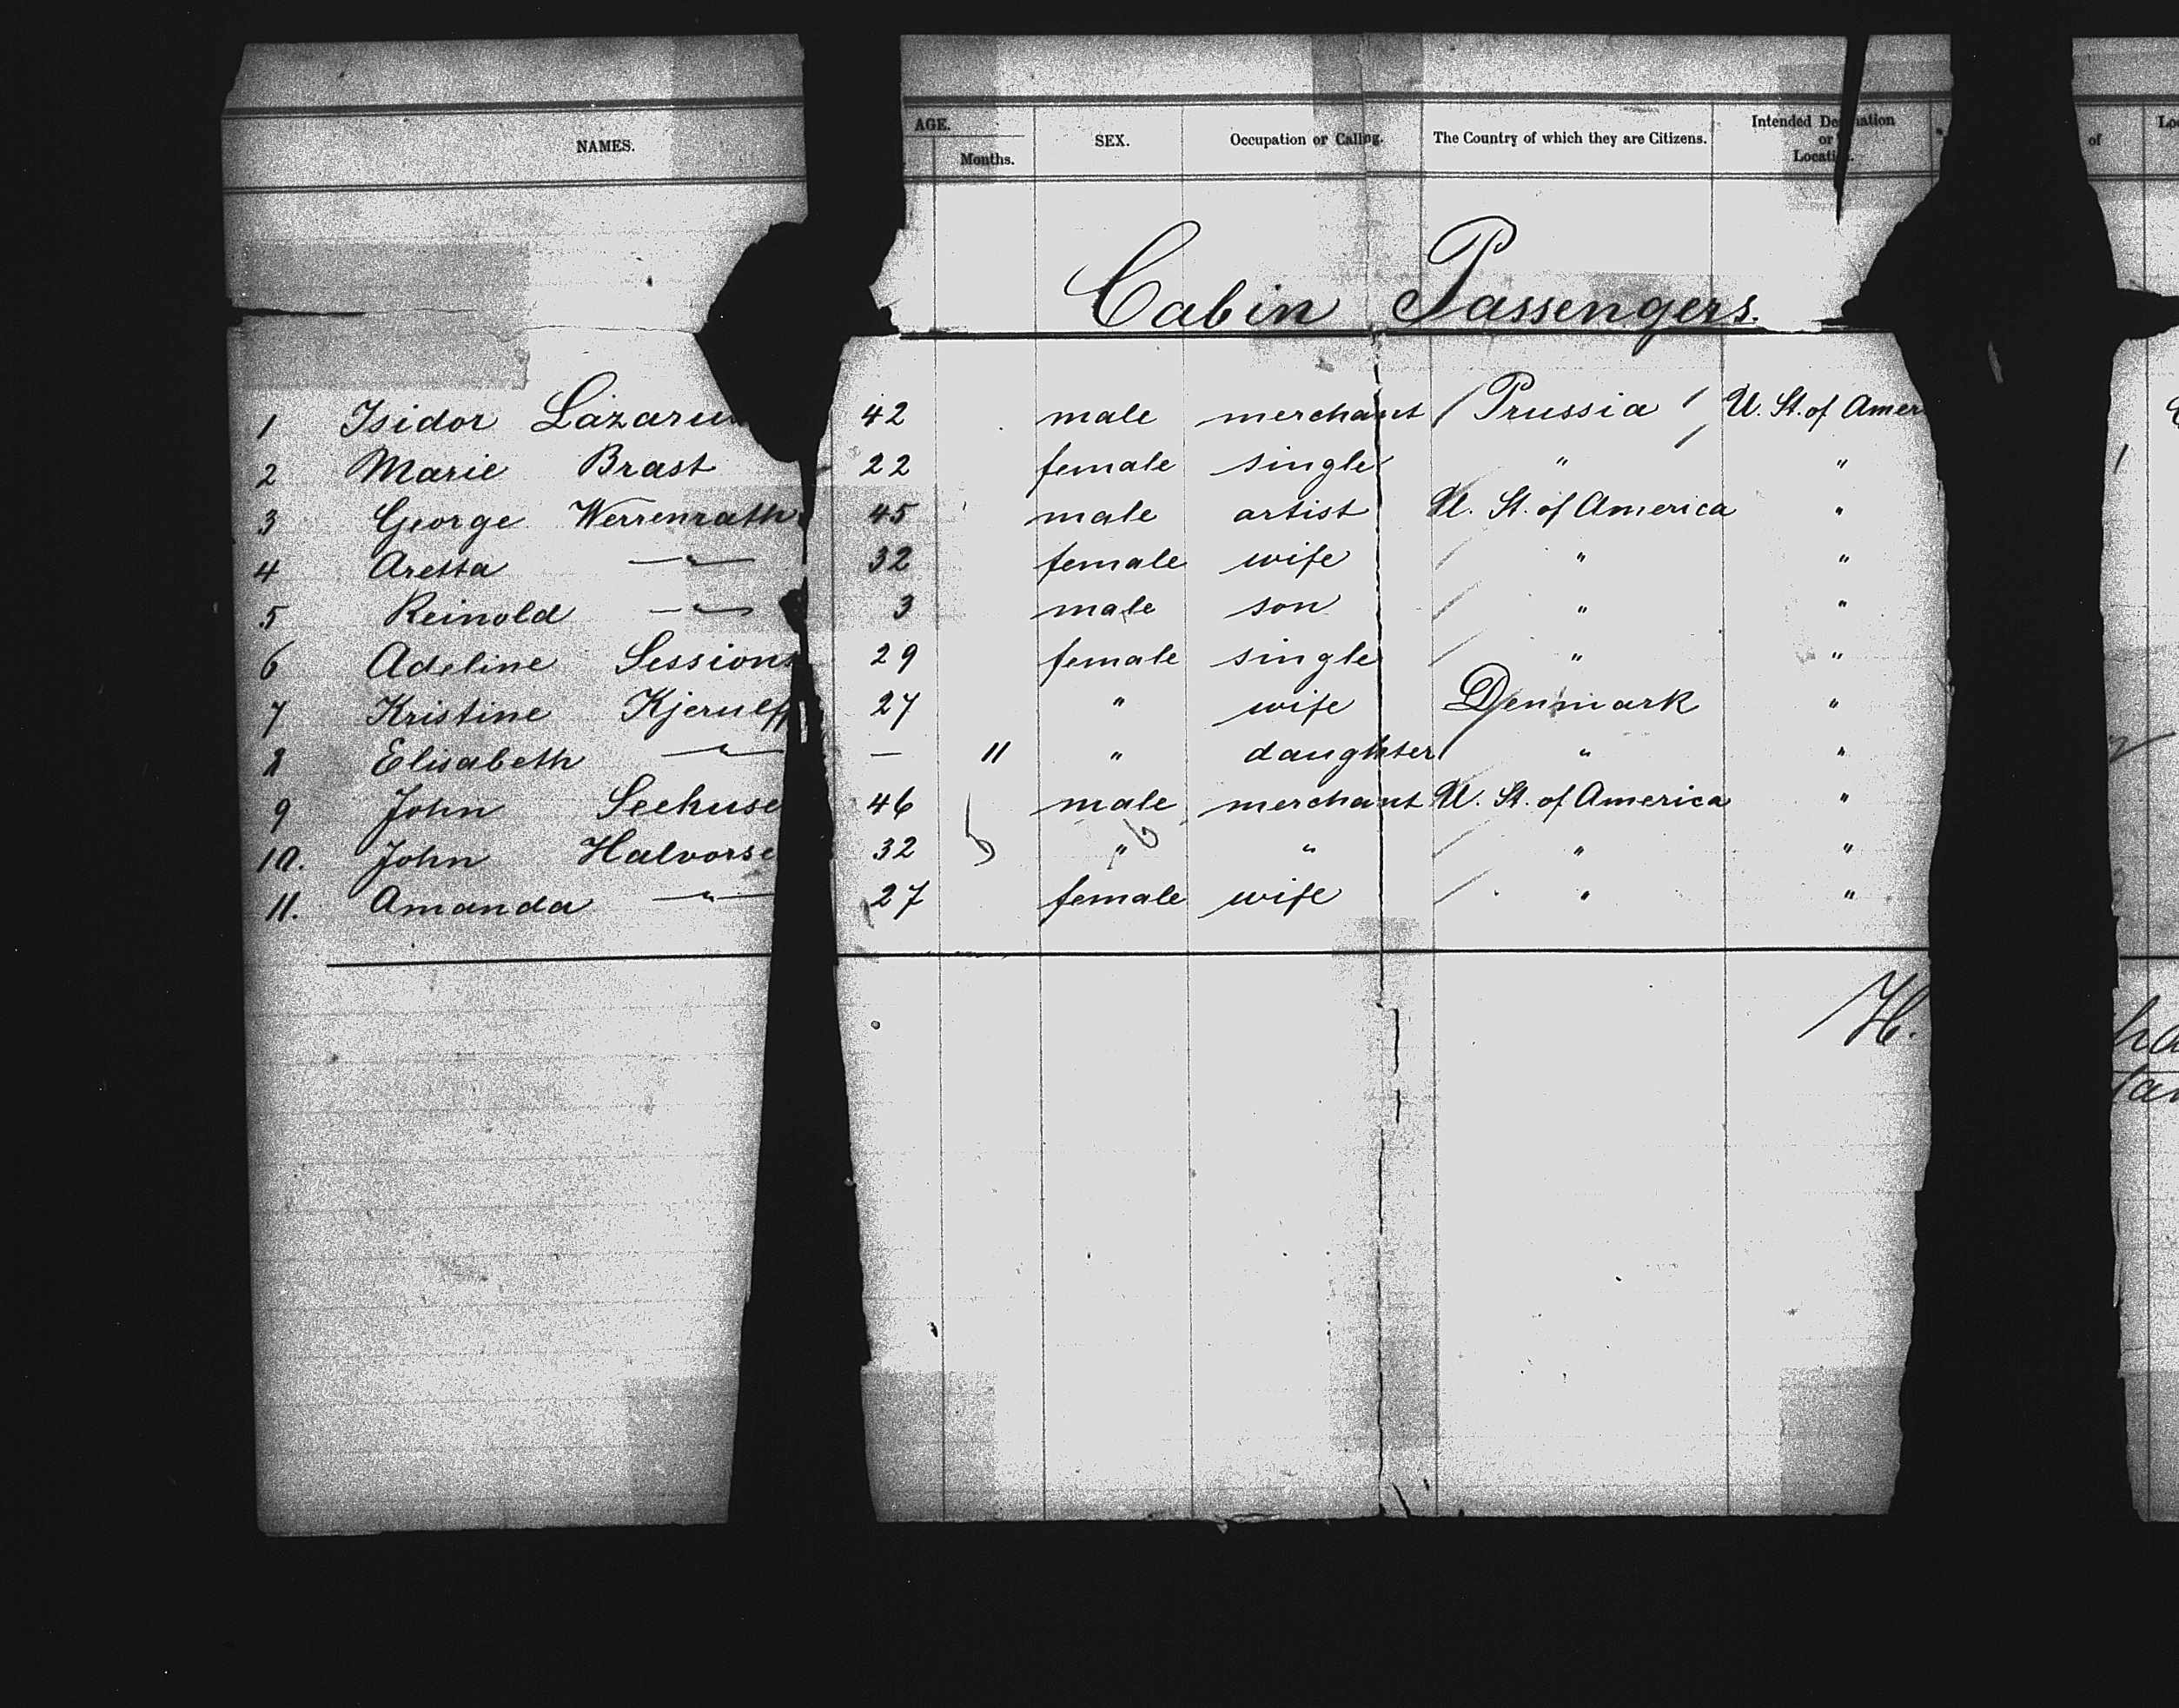 NAMES. AGE. Months. SEX. Occupation or Calling. The Country of which they are Citizens. Intended De nation or Locati . of Lo
Cabin Passengers.
1 Isidor Lazaru 42 male merchant Prussia U. St. of Amer
2 Marie Brast 22 female single " "
3 George Werrenrath 45 male artist U. St. of America "
4 Aretta —"— 32 female wife " "
5 Reinold —"— 3 male son " "
6 Adeline Sessions 29 female single " "
7 Kristine Kjerulff 27 " wife Denmark "
8 Elisabeth —"— — 11 " daughter " "
9 John Seehuse 46 male merchant U. St. of America "
10. John Halvorse 32 " " " "
11. Amanda —"— 27 female wife " "
H.